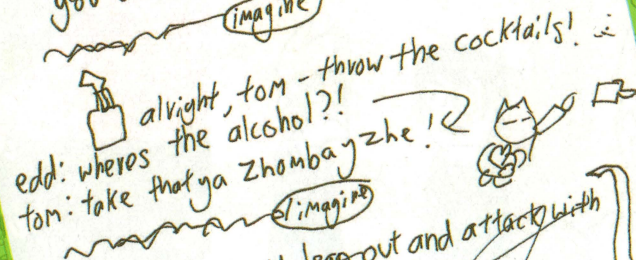 you
imagine
alright, tom - throw the cocktails!
edd: wheres the alcohol?!
tom: take that ya zhombayzhe!
imagine
out and attack with